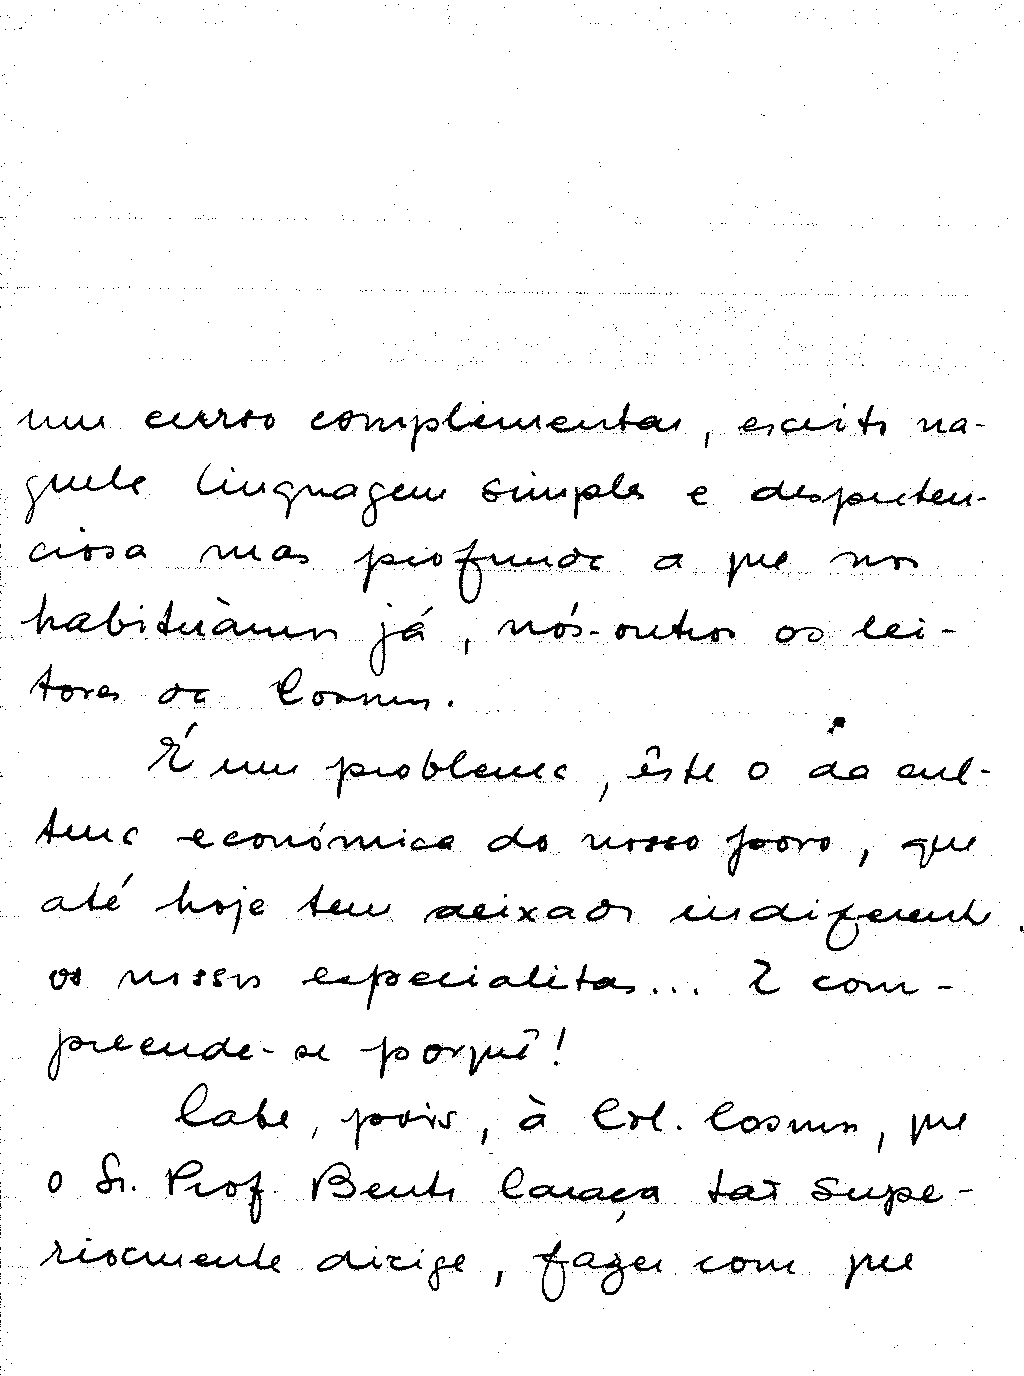 um curso complementar, escrito na-
quela linguagem simples e despreten-
ciosa mas profunda a que nos
habituàmos já, nós-outros os lei-
tores da Cosmos.
É um problema, êste o da cul-
tura económica do nosso povo, que
até hoje tem deixado indiferente
os nossos especialitas... E com-
preende-se porquê!
Cabe, pois, à Col. Cosmos, que
o Sr. Prof. Bento Caraça tão supe-
riormente dirige, fazer com que